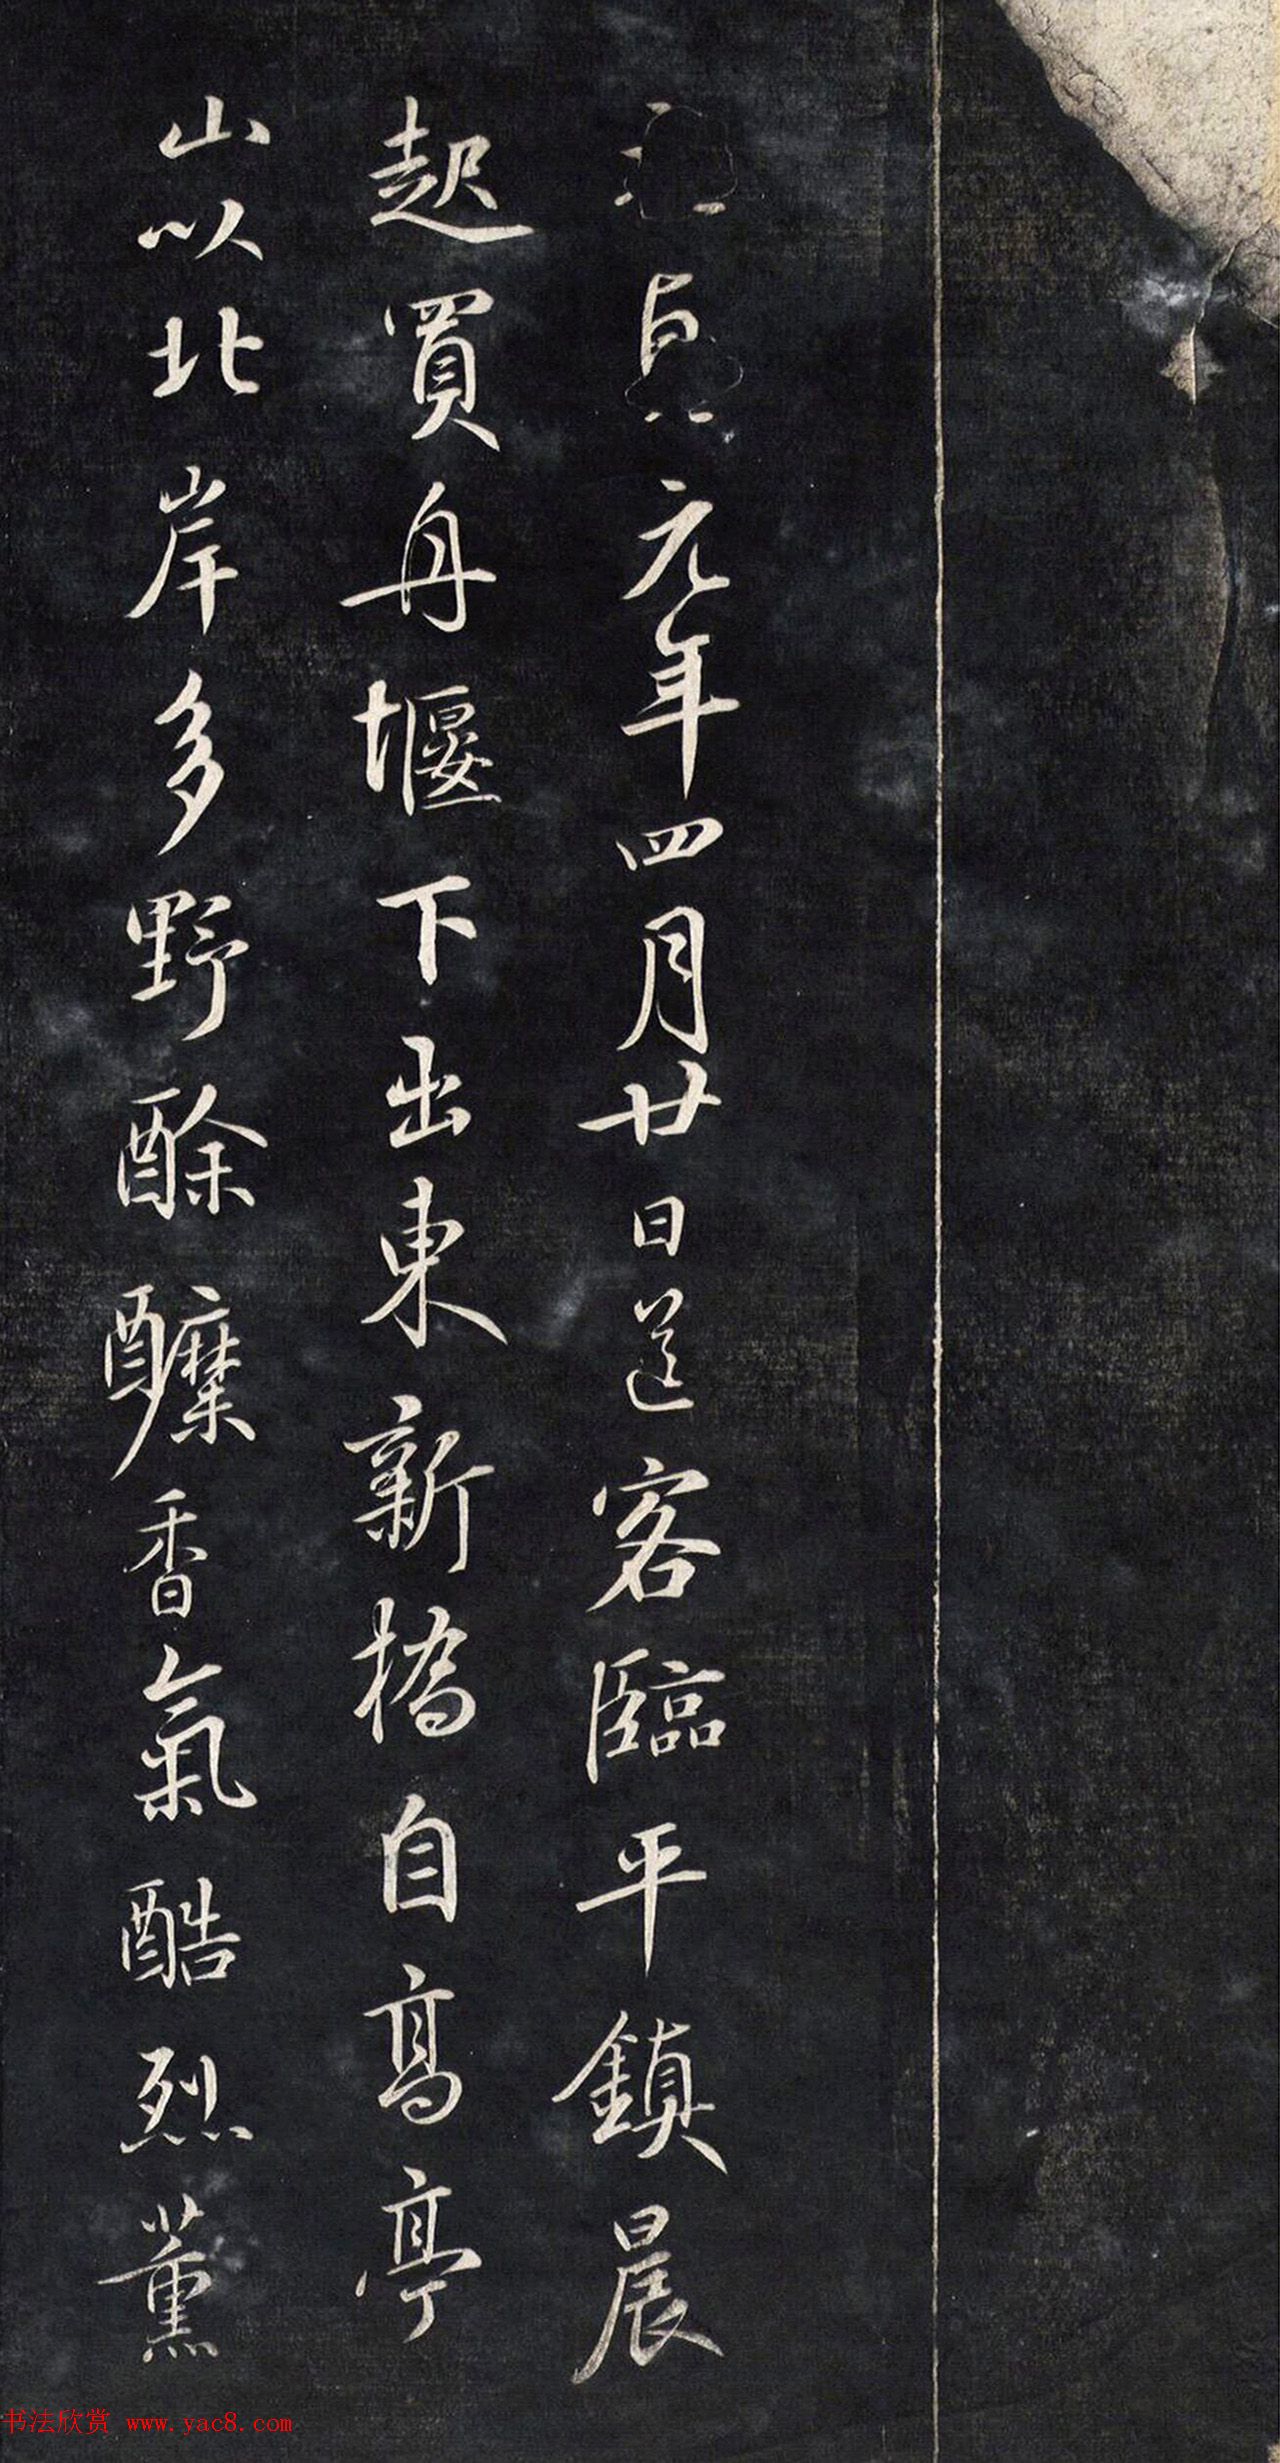 元年四月廿日送客臨平鎮晨
起買舟堰下出東新橋自高亭
山以北岸多野酴醿香氣酷烈薰
书法欣赏 www.yac8.com